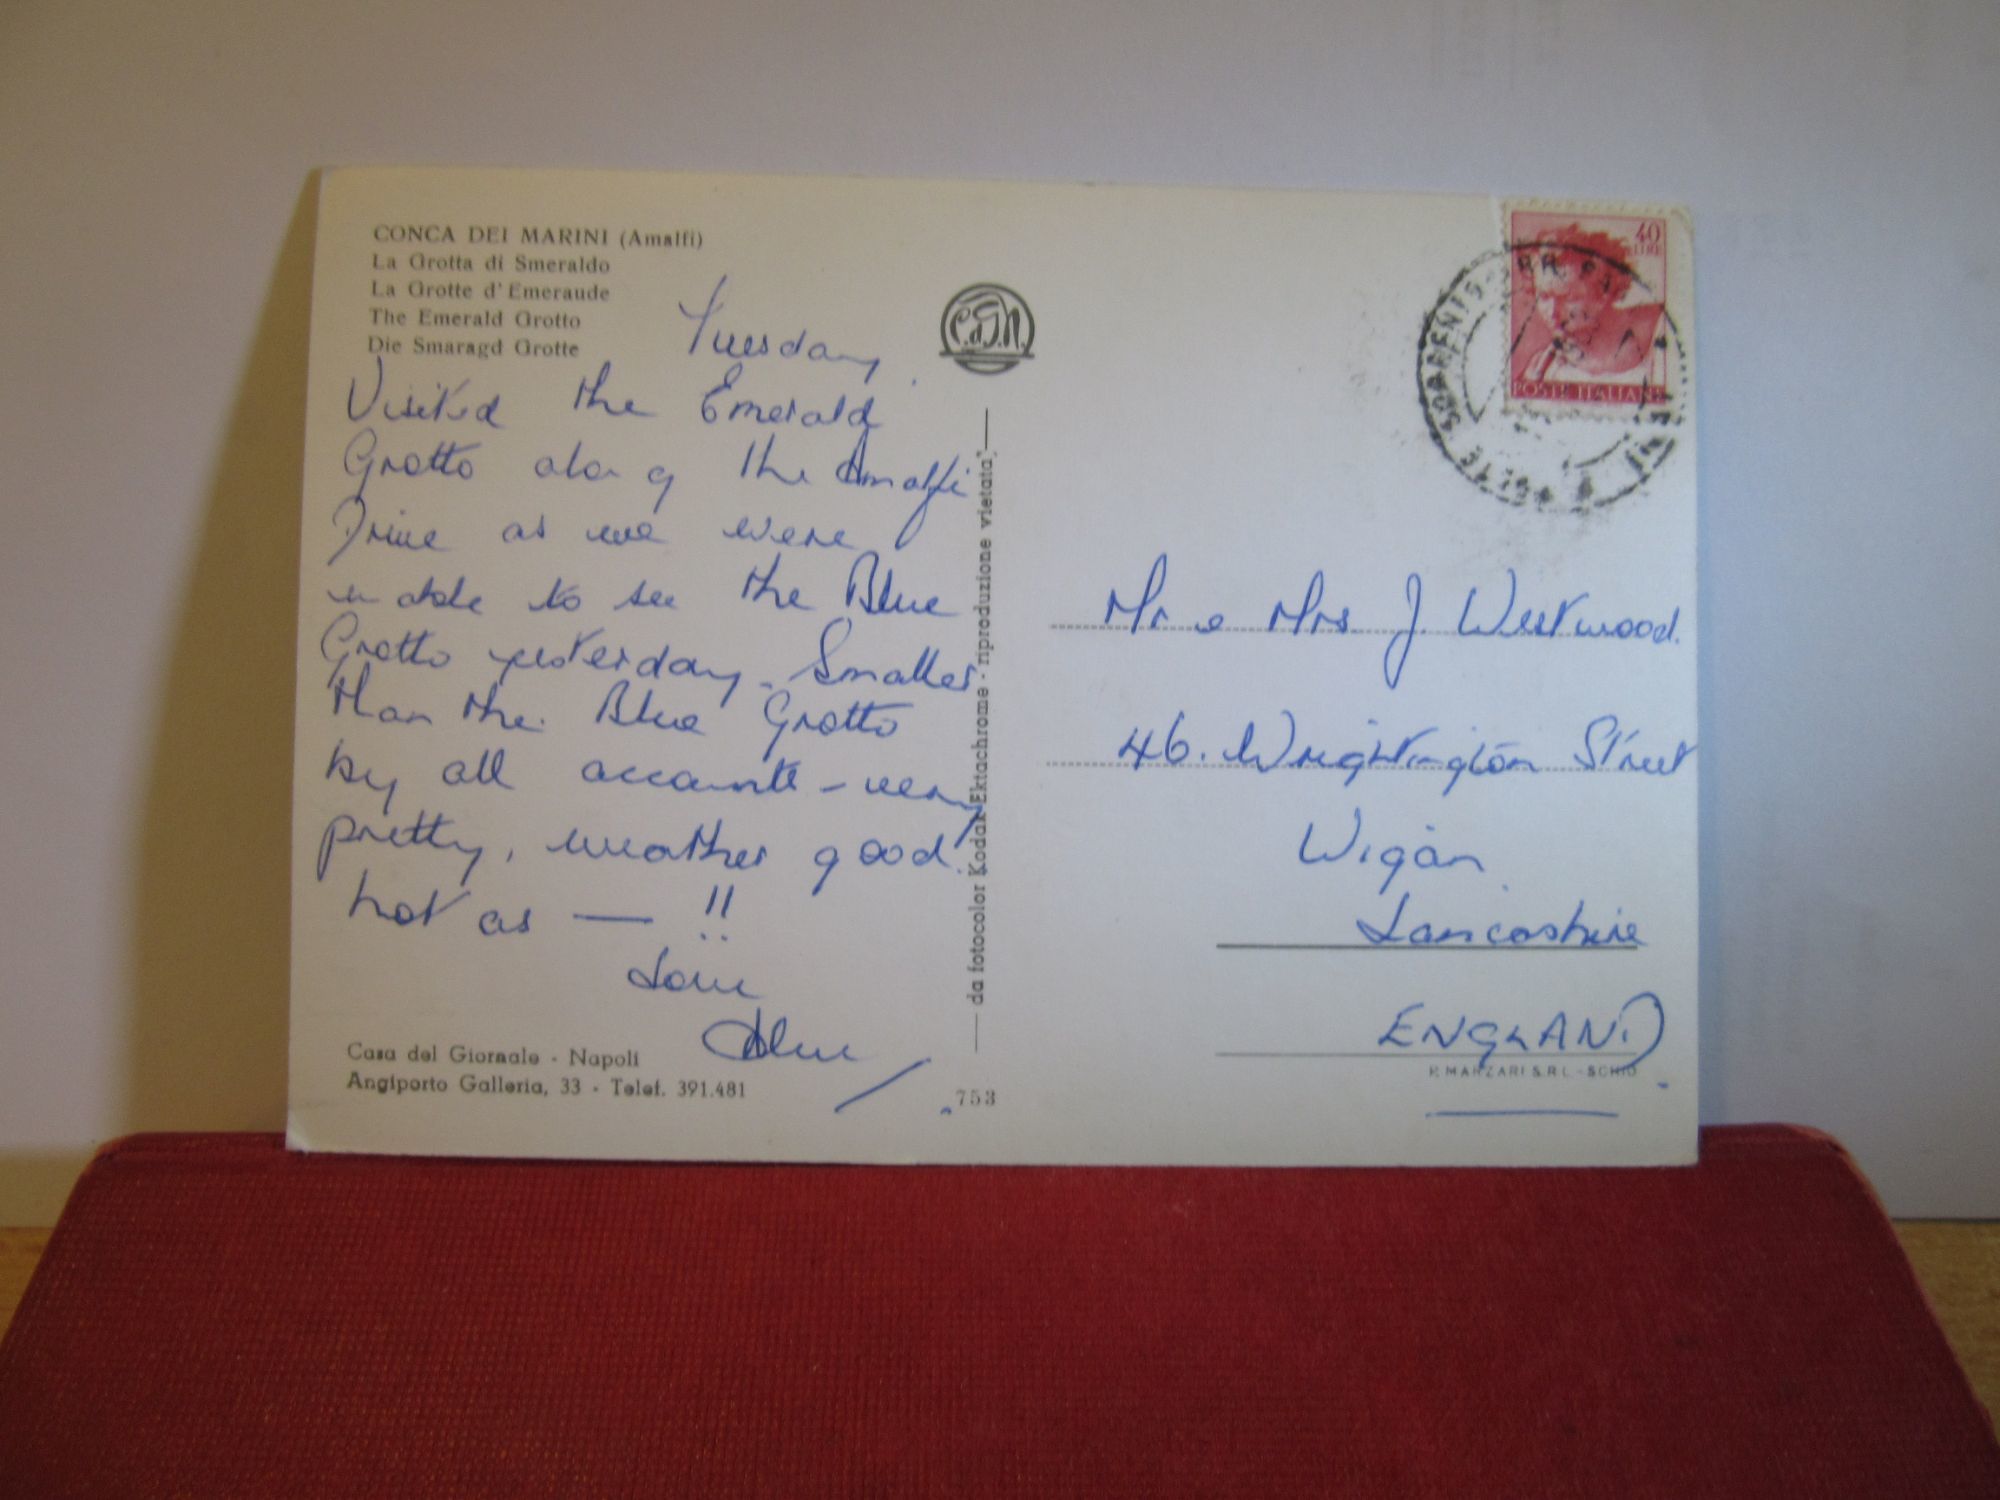 CONCA DEI MARINI (Amalfi)
La Grotta di Smeraldo
La Grotte d'Emeraude
The Emerald Grotto
Die Smaragd Grotte
Tuesday
Visited the Emerald
Grotto along the Amalfi
Drive as we were
unable to see the Blue
Grotto yesterday. Smaller
than the Blue Grotto
by all accounts - very
pretty, weather good.
hot as — !!
Love
Casa del Giornale - Napoli
Angiporto Galleria, 33 - Telef. 391.481
da fotocolor Kodak Ektachrome - riproduzione vietata
753
40
LIRE
POSTE ITALIANE
Mr & Mrs J. Westwood.
46. Wrightington Street
Wigan
Lancashire
ENGLAND
P. MARZARI S.R.L. - SCHIO